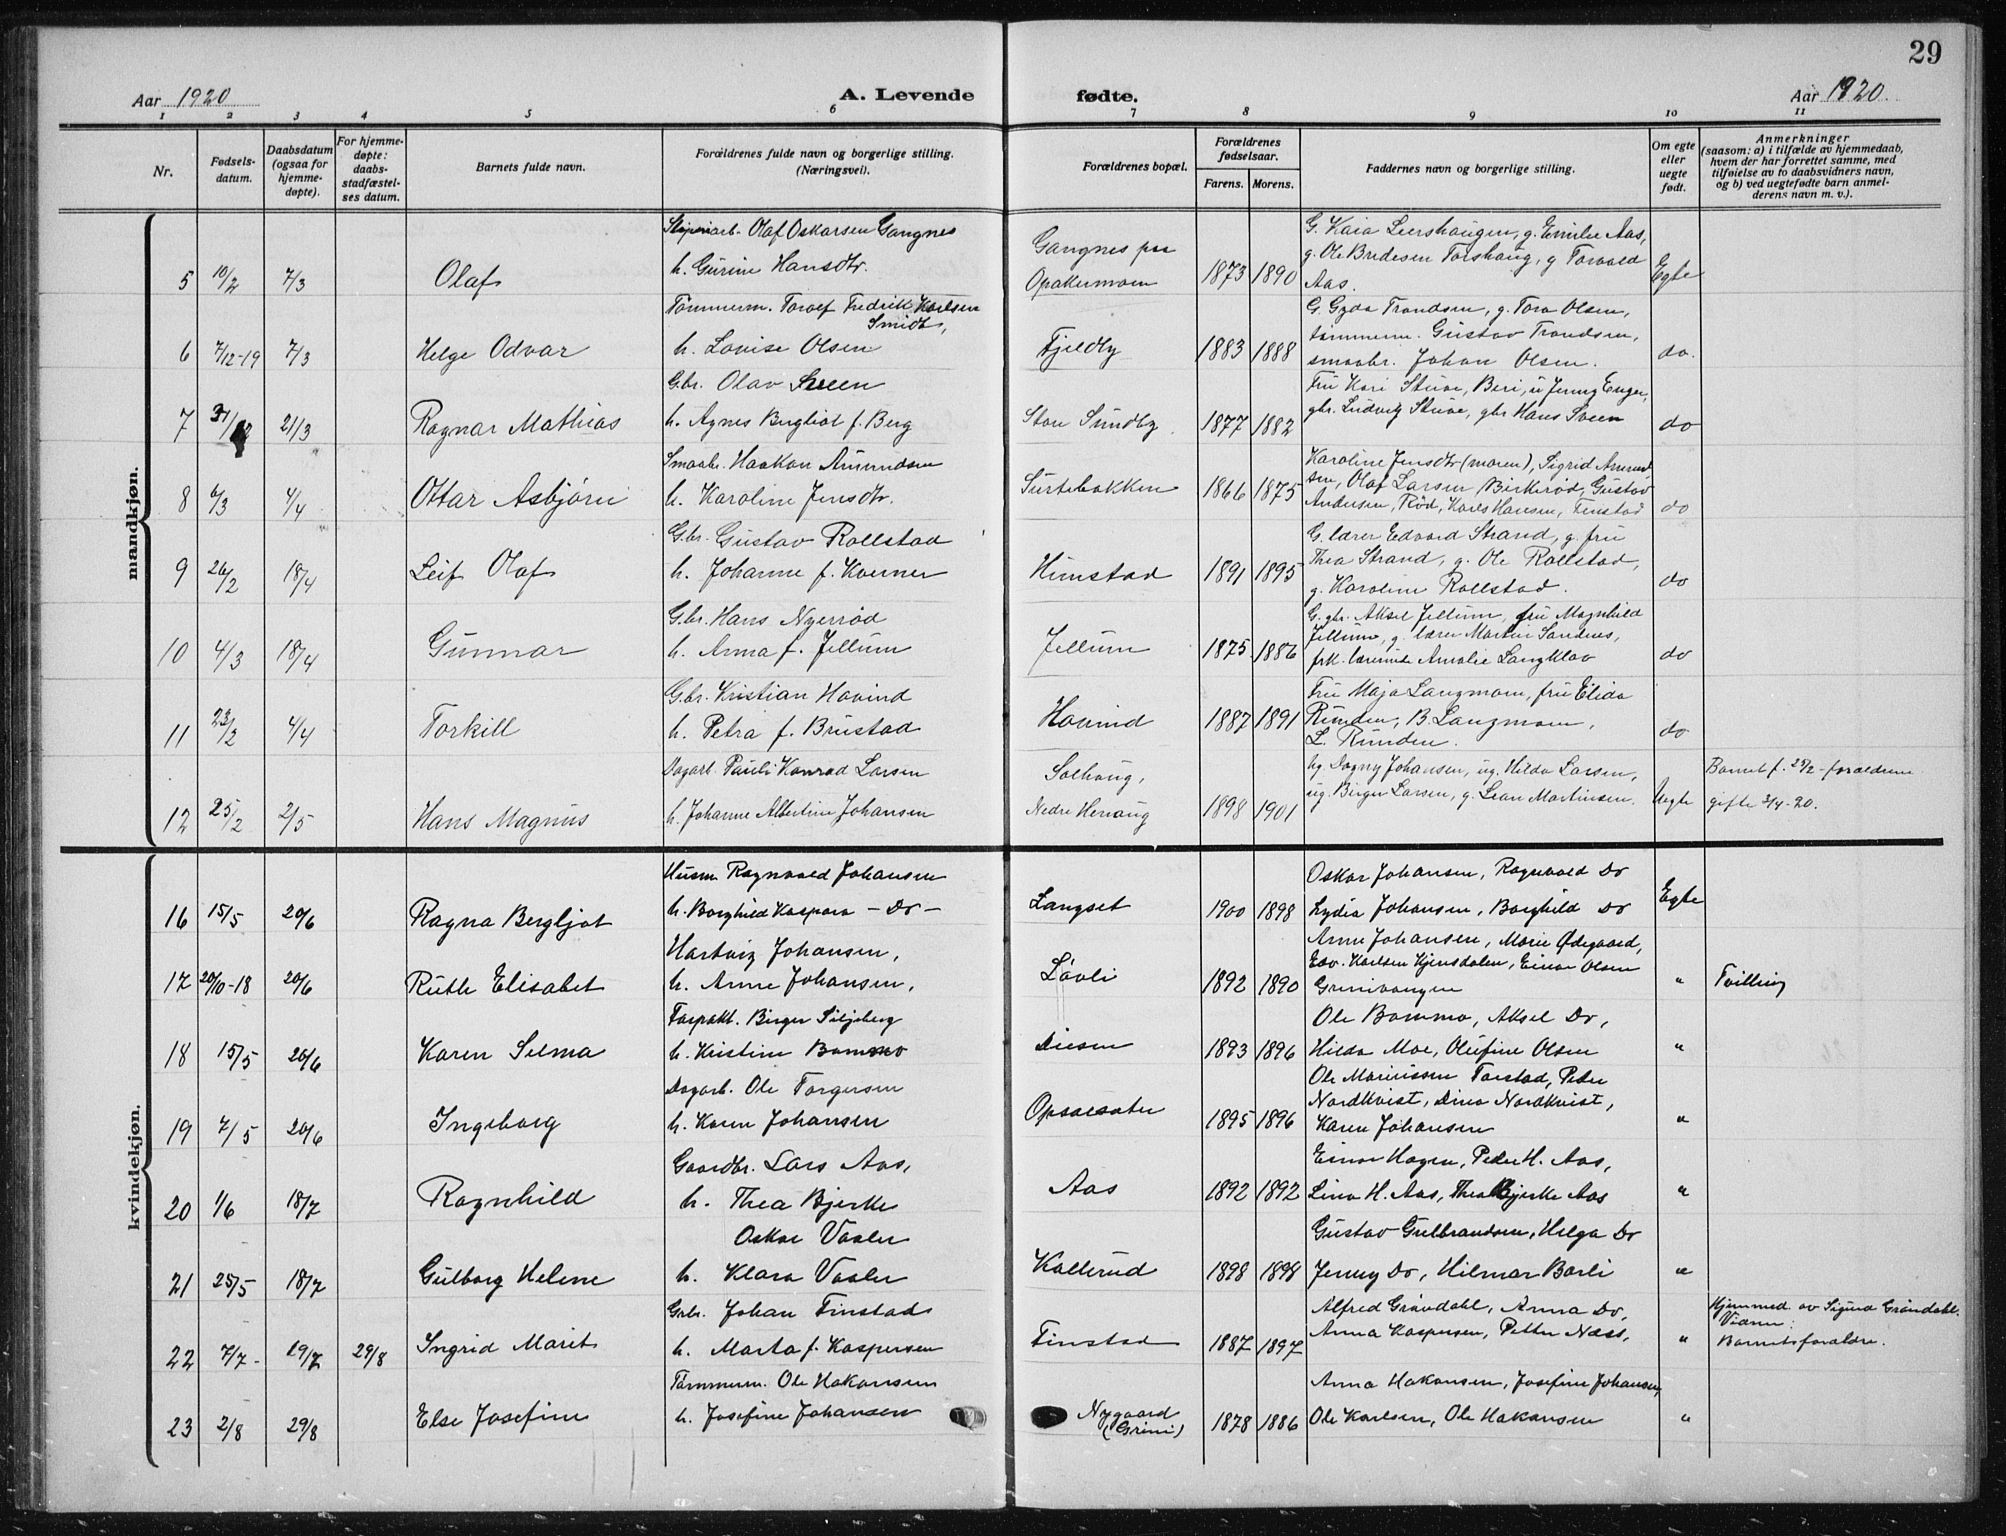 29
Aar 1920
A. Levende fødte.
Aar 1920.
1 2 3 4 5 6 7 8 9 10 11
Nr.
Fødsels-
datum.
Daabsdatum
(ogsaa for
hjemme-
døpte).
For hjemme-
døpte:
daabs-
stadfæstel-
ses datum.
Barnets fulde navn.
Forældrenes fulde navn og borgerlige stilling.
(Næringsvei).
Forældrenes bopæl.
Forældrenes
fødselsaar.
Farens. Morens.
Faddernes navn og borgerlige stilling.
Om egte
eller
uegte
født.
Anmerkninger
(saasom: a) i tilfælde av hjemmedaab,
hvem der har forrettet samme, med
tilføielse av to daabsvidners navn,
og b) ved uegtefødte barn anmel-
derens navn m. v.).
mandkjøn.
5 10/2 7/3 Olaf
Olaf Oskarsen Gangnes
h. Gurine Hansdtr.
Gangnes paa
Opakermoen
1873 1890
G. Kaia Leershaugen, g. Emilie Aas,
g. Ole Bredesen Torshaug, g Torvald
Aas.
Egte
6 7/12-19 7/3 Helge Odvar
Tømmerm. Toralf Fredrik Karlsen
Smidt,
h. Lovise Olsen
Fjeldby
1883 1888
G. Gyda Trondsen, g. Tora Olsen,
tømmerm. Gustav Trondsen,
smaabr. Johan Olsen.
do.
7 21/3 Ragnar Mathias
Gbr. Olav Sveen
h. Agnes Bergliot f. Berg
Stou Sundby
1877 1882
Fru Kari Stuve, Beri, u Jenny Enger,
gbr. Ludvig Stuve, gbr Hans Sveen
do
8 6/3 4/4 Ottar Asbjørn
Smaabr. Haakon Amundsen
h. Karoline Jensdtr.
Surtebakken
1866 1875
Karoline Jensdtr (moren), Sigrid Amund
sen, Olaf Larsen Birkerød, Gustav
Andersen, Rød, Karls Hansen, Finstad
do
9 26/2 18/4 Leif Olaf
Gbr. Gustav Rollstad
h. Johanne f. Kverner
Himstad
1891 1895
G. lærer Edvard Strand, g. fru
Thea Strand, g. Ole Rollstad,
g. Karoline Rollstad.
do
10 4/3 18/4 Gunnar
Gbr. Hans Nyerrød
h. Anna f. Jellum
Jellum
1875 1886
G. gbr. Aksel Jellum, fru Magnhild
Jellum, g. lærer Martin Sandnes,
frk. lærerinde Amalie Langklav
do
11 23/2 4/4 Torkill
Gbr. Kristian Hovind
h. Petra f. Brustad
Hovind
1887 1891
Fru Maja Langmoen, fru Elida
Runden, B. Langmoen,
L. Runden.
do
12 25/2 2/5 Hans Magnus
Dagarb. Pauli Konrad Larsen
h. Johanne Albertine Johansen
Solhaug,
Nedre Henaug
1898 1901
ug. Dagny Johansen, ug. Hilda Larsen,
ug. Birger Larsen, g. Lean Martinsen.
Uegte
Barnet f. 25/2 - forældrene
gifte 3/4-20.
kvindekjøn.
16 15/5 20/6 Ragna Bergljot
Husm Ragnvald Johansen
h. Borghild Kaspara - Do -
Langset
1900 1898
Oskar Johansen, Ragnvald Do
Lydia Johansen, Borghild Do
Egte
17 20/10-18 20/6 Ruth Elisabet
Hartvig Johansen,
h. Anne Johansen,
Løvli
1892 1890
Anne Johansen, Marie Ødegaard,
Edv. Karlsen Kjensdalen, Einar Olsen
Grinivangen
" Tvilling
18 15/5 20/6 Karen Selma
Forpakt. Birger Siljeberg
h. Kristine Bommo
Diesen
1893 1896
Ole Bommo, Aksel Do,
Hilda Moe, Olufine Olsen
"
19 7/5 20/6 Ingeborg
Dagarb. Ole Torgersen
h. Karen Johansen
Opsalsæter
1895 1896
Ole Mariussen Torstad, Peder
Nordkvist, Dina Nordkvist,
Karen Johansen
"
20 1/6 18/7 Ragnhild
Gaardbr. Lars Aas,
h. Thea Bjerke
Aas
1892 1892
Einar Hagen, Peder H. Aas,
Lina H. Aas, Thea Bjerke Aas
"
21 25/5 18/7 Gulborg Helene
Oskar Vaaler
h. Klara Vaaler
Kallerud
1898 1898
Gustav Gulbrandsen, Helga Do
Jenny Do, Hilmar Barli
"
22 7/7- 19/7 29/8 Ingrid Marit
Gbr. Johan Finstad
h. Marta f. Kaspersen
Finstad
1887 1897
Alfred Grøndahl, Anna Do,
Anna Kaspersen, Petter Næss,
"
Hjemmed. av Sigurd Grøndahl.
Vidner:
Barnets forældre.
23 2/8 29/8 Else Josefine
Tømmerm. Ole Hakonsen
h. Josefine Johansen
Nygaard
(Grini)
1878 1886
Anna Hakonsen, Josefine Johansen,
Ole Karlsen, Ole Hakonsen
"